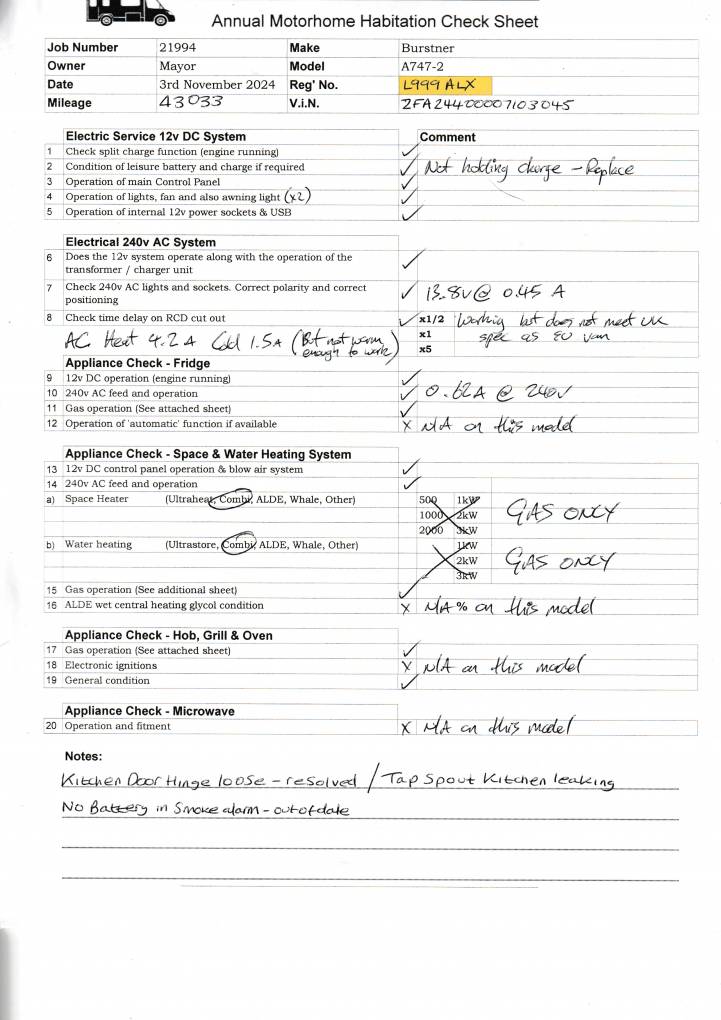 Annual Motorhome Habitation Check Sheet
Job Number 21994 Make Burstner
Owner Mayor Model A747-2
Date 3rd November 2024 Reg' No. L999 ALX
Mileage 43033 V.i.N. ZFA24400007103045
Electric Service 12v DC System Comment
1 Check split charge function (engine running) ✓
2 Condition of leisure battery and charge if required ✓ Not holding charge - Replace
3 Operation of main Control Panel ✓
4 Operation of lights, fan and also awning light (x2) ✓
5 Operation of internal 12v power sockets & USB ✓
Electrical 240v AC System
6 Does the 12v system operate along with the operation of the
transformer / charger unit ✓
7 Check 240v AC lights and sockets. Correct polarity and correct
positioning ✓ 13.8v@ 0.45 A
8 Check time delay on RCD cut out ✓ x1/2 Working but does not meet UK
x1 spec as EU van
x5
AC Heat 4.2A Cold 1.5A (But not warm
enough to work)
Appliance Check - Fridge
9 12v DC operation (engine running) ✓
10 240v AC feed and operation ✓ 0.62A @ 240v
11 Gas operation (See attached sheet) ✓
12 Operation of 'automatic' function if available X N/A on this model
Appliance Check - Space & Water Heating System
13 12v DC control panel operation & blow air system ✓
14 240v AC feed and operation ✓
a) Space Heater (Ultraheat, Combi, ALDE, Whale, Other) 500 1kW GAS ONLY
1000 2kW
2000 3kW
b) Water heating (Ultrastore, Combi, ALDE, Whale, Other) 1kW GAS ONLY
2kW
3kW
15 Gas operation (See additional sheet) ✓
16 ALDE wet central heating glycol condition X N/A % on this model
Appliance Check - Hob, Grill & Oven
17 Gas operation (See attached sheet) ✓
18 Electronic ignitions X N/A on this model
19 General condition ✓
Appliance Check - Microwave
20 Operation and fitment X N/A on this model
Notes:
Kitchen Door Hinge loose - resolved / Tap Spout Kitchen leaking
No Battery in Smoke alarm - out of date